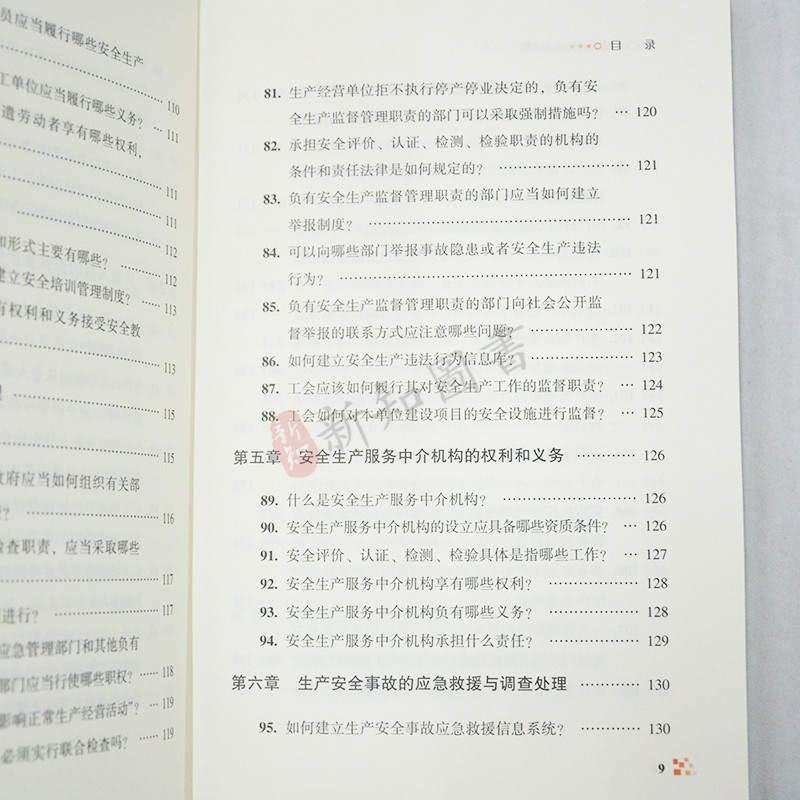 员应当履行哪些安全生产
110
工单位应当履行哪些义务？ … 111
遣劳动者享有哪些权利，
111
111
112
和形式主要有哪些？ …… 112
建立安全培训管理制度？ …… 113
有权利和义务接受安全教
113
115
115
政府应当如何组织有关部
116
检查职责，应当采取哪些
117
进行？ 117
应急管理部门和其他负有
部门应当行使哪些职权？ …… 118
影响正常生产经营活动”？ … 119
必须实行联合检查吗？ …… 119
目 录
81. 生产经营单位拒不执行停产停业决定的，负有安
全生产监督管理职责的部门可以采取强制措施吗？ … 120
82. 承担安全评价、认证、检测、检验职责的机构的
条件和责任法律是如何规定的？ ……………… 121
83. 负有安全生产监督管理职责的部门应当如何建立
举报制度？ ……………………………… 121
84. 可以向哪些部门举报事故隐患或者安全生产违法
行为？ ………………………………… 121
85. 负有安全生产监督管理职责的部门向社会公开监
督举报的联系方式应注意哪些问题？ …………… 122
86. 如何建立安全生产违法行为信息库？ …………… 123
87. 工会应该如何履行其对安全生产工作的监督职责？ … 124
88. 工会如何对本单位建设项目的安全设施进行监督？ … 125
第五章 安全生产服务中介机构的权利和义务 ………… 126
89. 什么是安全生产服务中介机构？ ……………… 126
90. 安全生产服务中介机构的设立应具备哪些资质条件？ … 126
91. 安全评价、认证、检测、检验具体是指哪些工作？ … 127
92. 安全生产服务中介机构享有哪些权利？ ………… 128
93. 安全生产服务中介机构负有哪些义务？ ………… 128
94. 安全生产服务中介机构承担什么责任？ ………… 129
第六章 生产安全事故的应急救援与调查处理 ………… 130
95. 如何建立生产安全事故应急救援信息系统？ ……… 130
9
新知圖書
新知